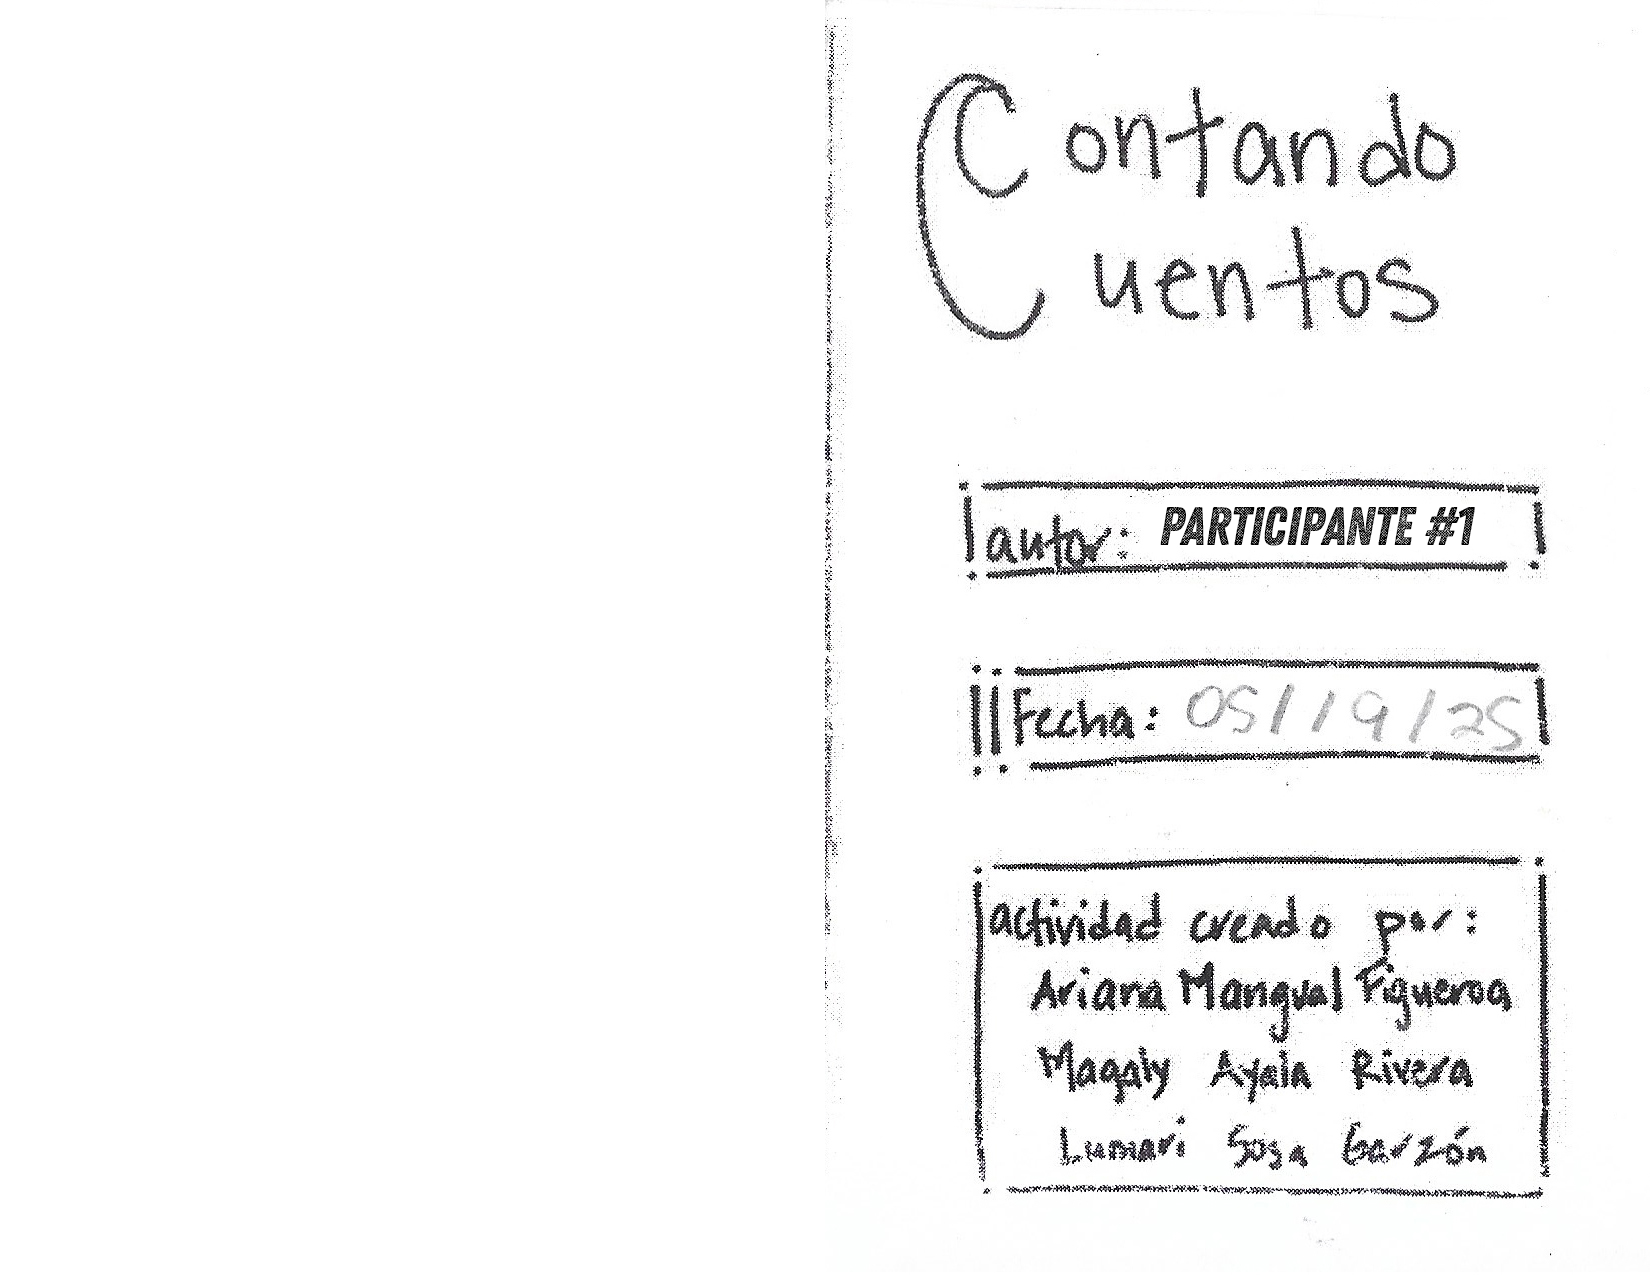 Contando
Cuentos
autor: PARTICIPANTE #1
Fecha: 05/19/25
actividad creado por:
Ariana Mangual Figueroa
Magaly Ayala Rivera
Lumari Sosa Garzón